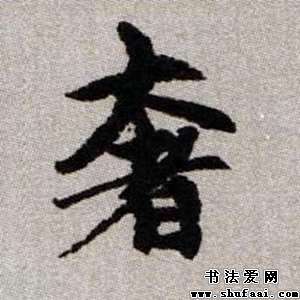 奢
书法爱网
www.shufaai.com